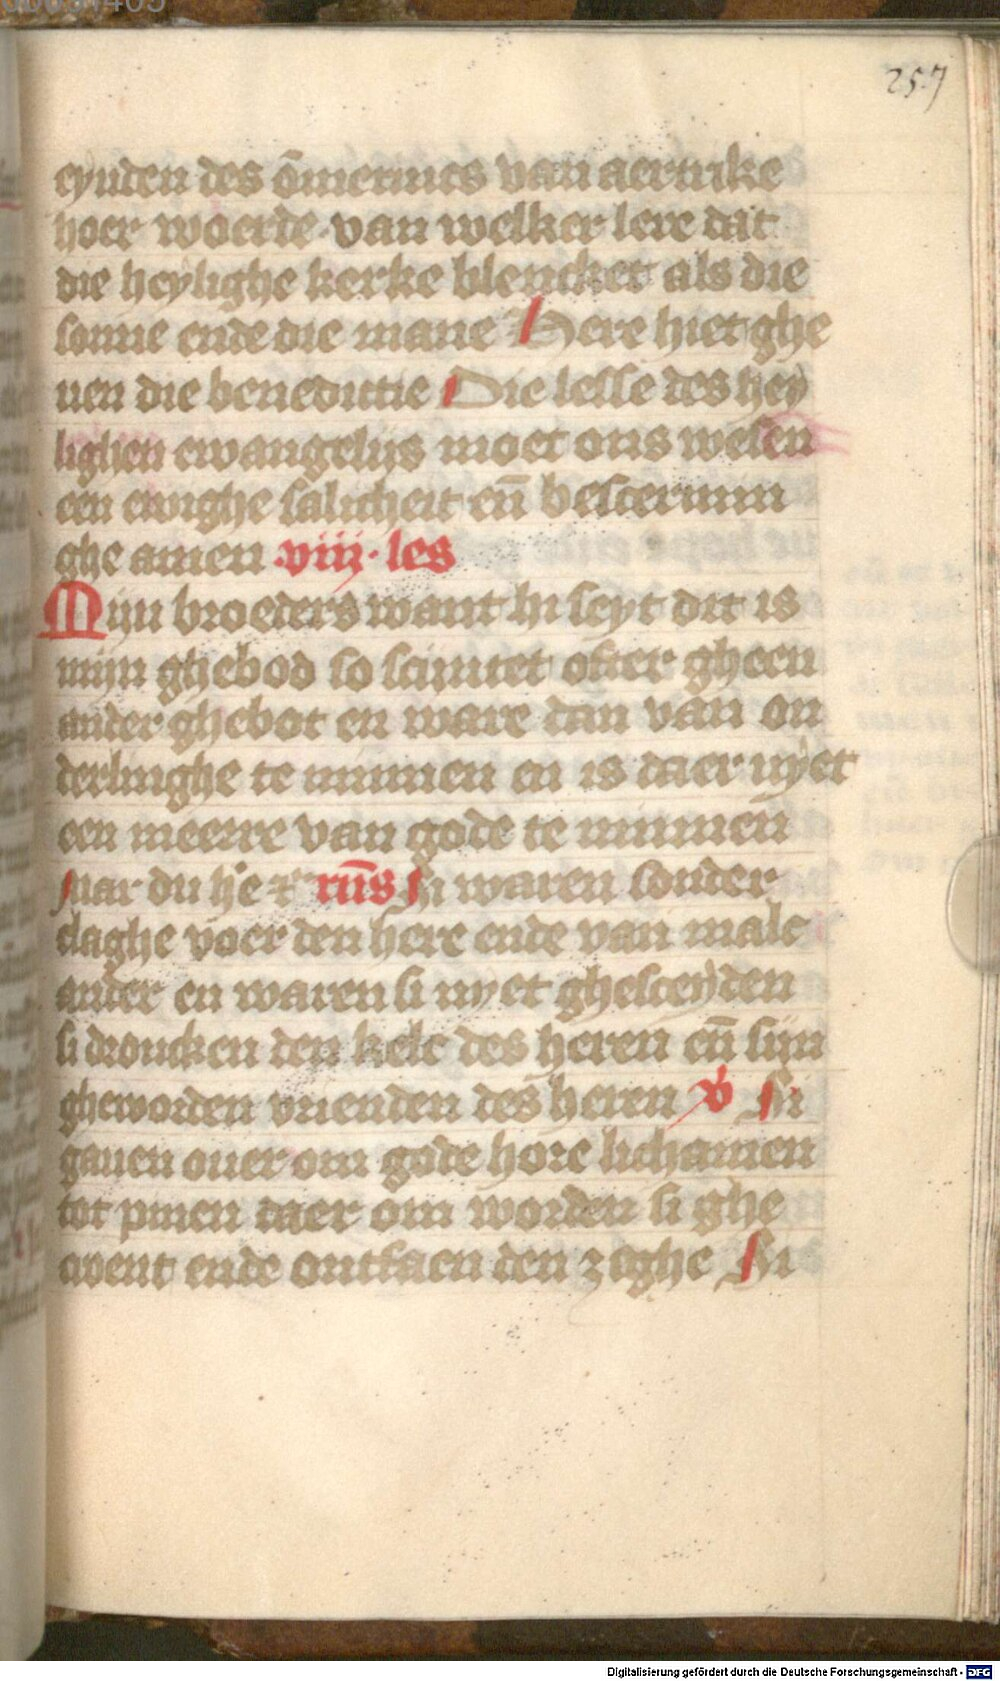 257
eynden des ōmerincs van aertrike
hoer woerde van welker lere dat
die heylighe kerke blencket als die
sonne ende die mane Here hiet ghe
uen die benedictie Die lesse des hey
lighen ewangelijs moet ons wesen
een ewighe salicheit eñ bescermin
ghe amen viij les
Mijn broeders want hi seyt dit is
mijn ghebod so scijntet ofter gheen
ander ghebot en ware dan van on
derlinghe te minnen en is daer nyet
een meerre van gode te minnen
Mar du h'e &
Si waren sonder
claghe voer den here ende van malc
ander en waren si nyet ghesceyden
si droncken den kelc des heren eñ sijn
gheworden vrienden des heren v̉ Si
gauen ouer om gode hore lichamen
tot pinen daer om worden si ghe
ende ontfaen den zeghe Si
Digitalisierung gefördert durch die Deutsche Forschungsgemeinschaft - DFG